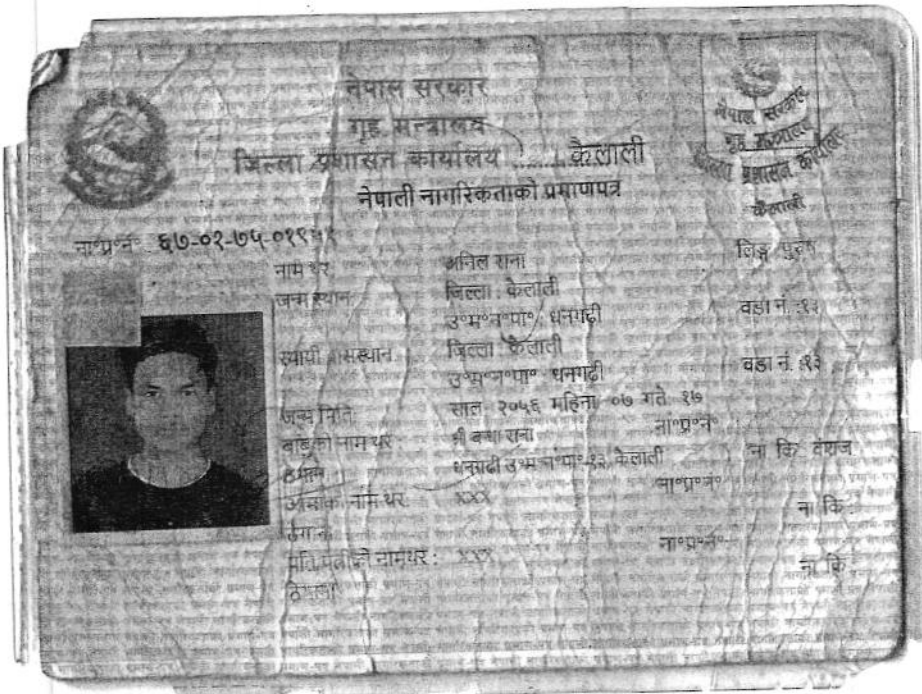 नेपाल सरकार
गृह मन्त्रालय
जिल्ला प्रशासन कार्यालय ...... कैलाली
नेपाली नागरिकताको प्रमाणपत्र
नेपाल सरकार
गृह मन्त्रालय
जिल्ला प्रशासन कार्यालय
कैलाली
ना॰प्र॰नं॰ ६७-०१-७५-०१९
नाम थर: अनिल राना लिङ्ग: पुरुष
जन्म स्थान: जिल्ला : कैलाली
उ॰म॰न॰पा॰ धनगढी वडा नं. :१३
स्थायी बासस्थान जिल्ला : कैलाली
उ॰म॰न॰पा॰ धनगढी वडा नं. :१३
जन्म मिति: साल: २०५६ महिना: ०७ गते: १७
बाबुको नाम थर: श्री राना ना॰प्र॰नं॰
ठेगाना: धनगढी उ॰म॰न॰पा॰-१३, कैलाली ना कि: वंशज
आमाको नाम थर: xxx ना॰प्र॰नं॰
ठेगाना: ना कि :
पति/पत्नीको नामथर : xxx ना॰प्र॰नं॰
ठेगाना: ना कि :